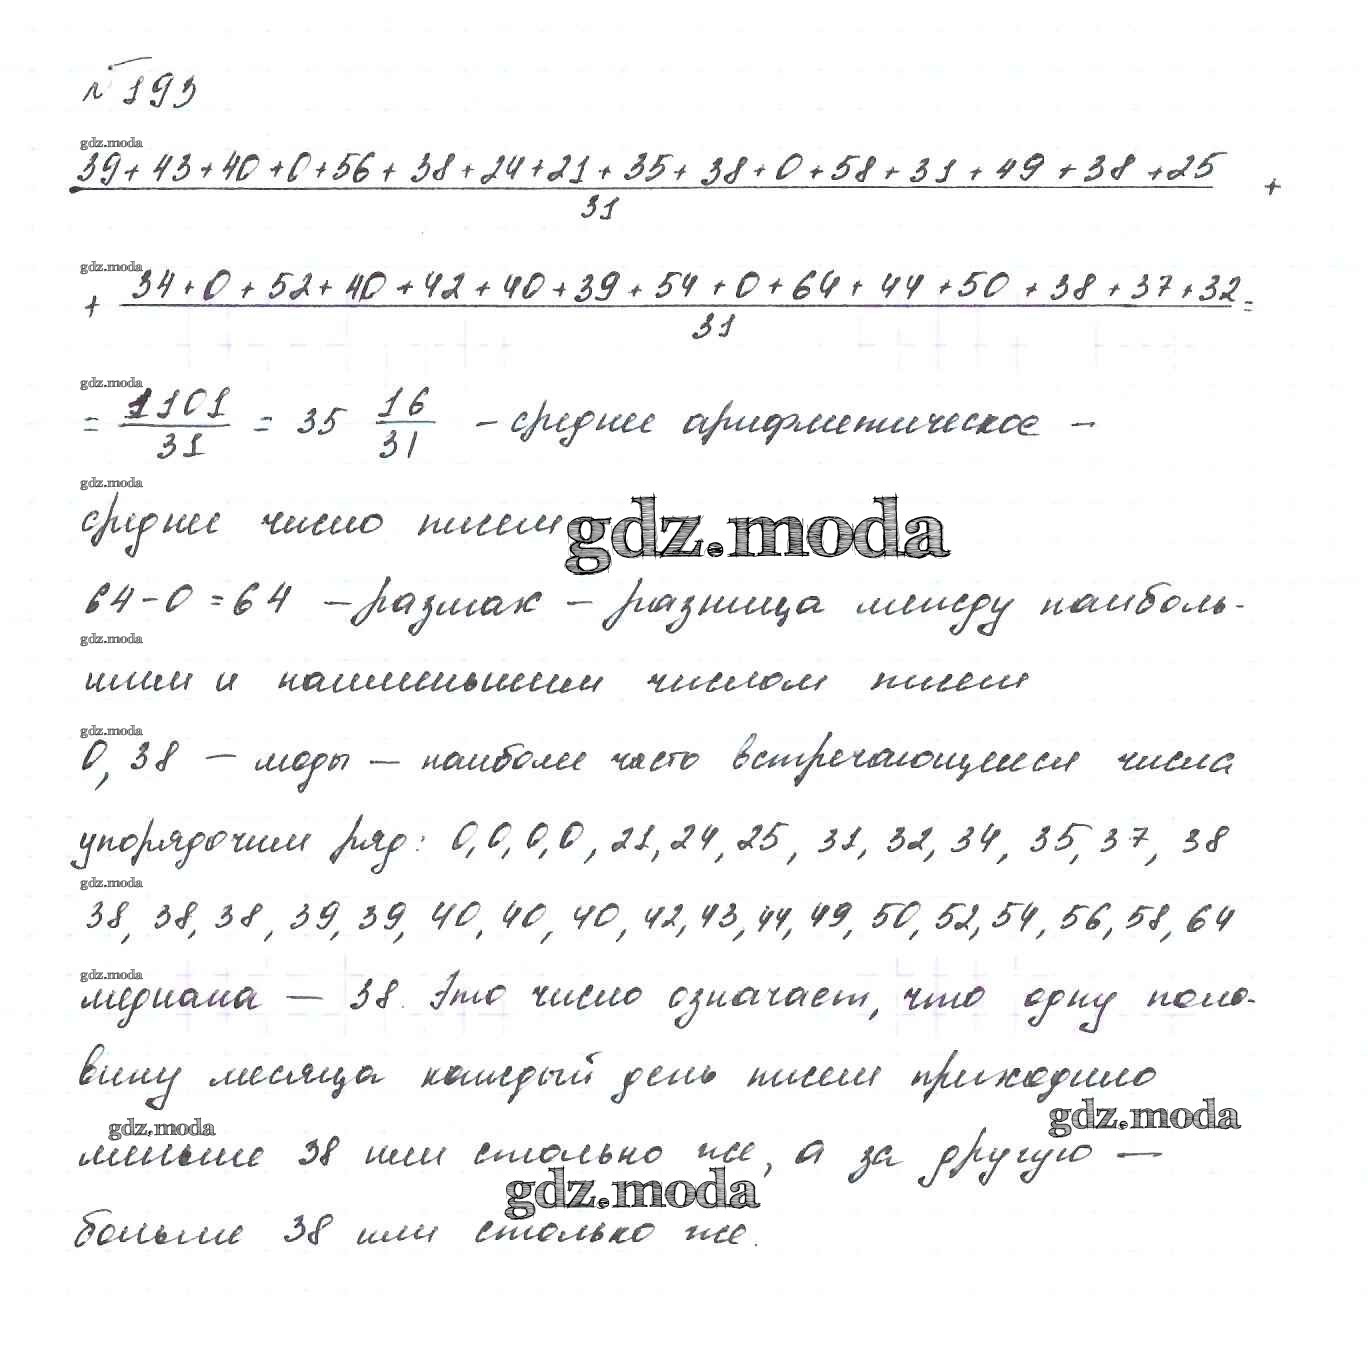 № 193
gdz.moda
39 + 43 + 40 + 0 + 56 + 38 + 24 + 21 + 35 + 38 + 0 + 58 + 31 + 49 + 38 + 25 +
31
gdz.moda
+ 34 + 0 + 52 + 40 + 42 + 40 + 39 + 54 + 0 + 64 + 44 + 50 + 38 + 37 + 32 =
31
gdz.moda
= 1101/31 = 35 16/31 – среднее арифметическое –
gdz.moda
среднее число писем
gdz.moda
64 – 0 = 64 – размах – разница между наиболь-
gdz.moda
шим и наименьшим числом писем
gdz.moda
0, 38 – моды – наиболее часто встречающиеся числа
упорядочим ряд: 0, 0, 0, 0, 21, 24, 25, 31, 32, 34, 35, 37, 38
gdz.moda
38, 38, 38, 39, 39, 40, 40, 40, 42, 43, 44, 49, 50, 52, 54, 56, 58, 64
gdz.moda
медиана – 38. Это число означает, что одну поло-
вину месяца каждый день писем приходило
gdz.moda
gdz.moda
меньше 38 или столько же, а за другую –
gdz.moda
больше 38 или столько же.